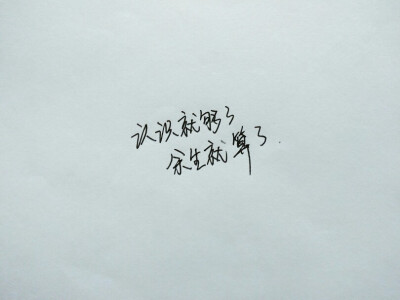 认识就够了
余生就算了.